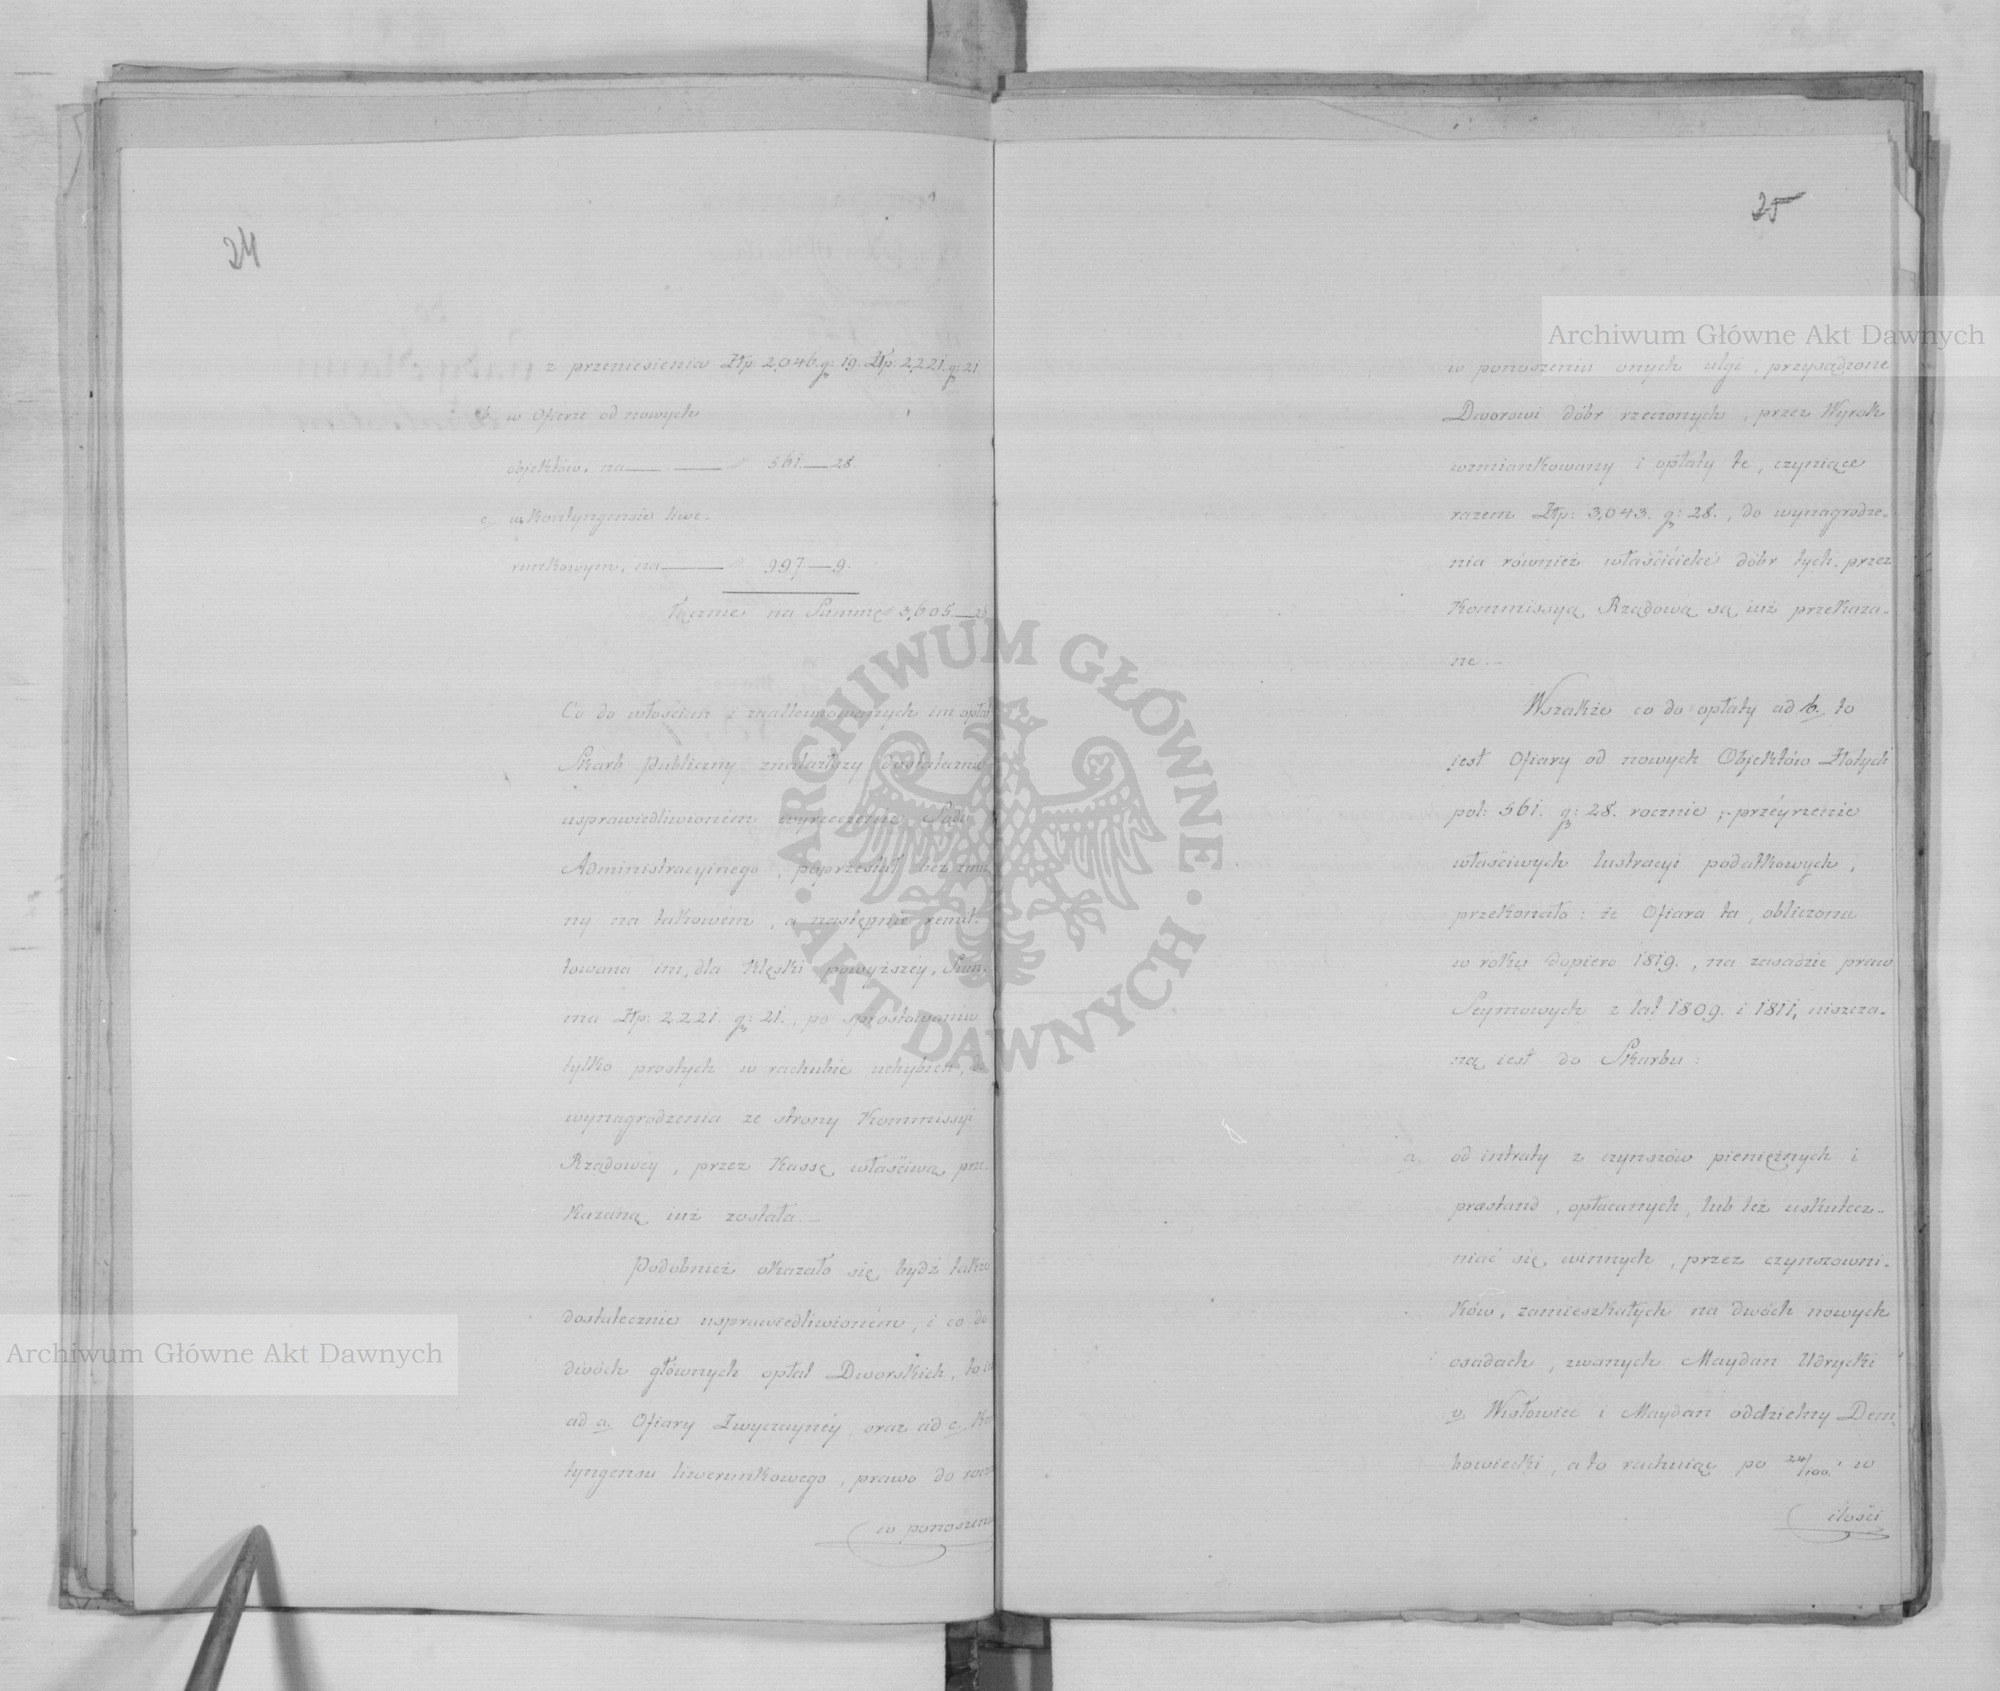 24
z przeniesienia Złp. 2,046. gr: 19. Złp. 2221. gr: 21
b. w Ofierze od nowych
objektów, na 561.—28.
c. w Kontyngensie liwe-
runkowym, na 997—9.
łącznie na Summę 3,605—26
Co do włościan i zallewiowanych im opłat
Skarb Publiczny, znalazłszy dostatecznie
usprawiedliwioném wyrzeczenie Sądu
Administracyinego, poprzestał bez zmia
ny na takowém, a następnie remit-
towana im, dla klęski powyższéy, Sum-
ma Złp: 2221. gr: 21., po sprostowaniu
tylko prostych w rachubie uchybień, do
wynagrodzenia ze strony Kommissyi
Rządowéy, przez Kassę właściwą prze-
kazaną iuż została.—
Podobnież okazało się bydź także
dostatecznie usprawiedliwioném, i co do
dwóch głównych opłat Dworskich, to iest
ad a. Ofiary Zwyczaynéy, oraz ad c. Kon
tyngensu liwerunkowego, prawo do
w ponoszeniu
25
w ponoszeniu onych ulgi, przysądzone
Dworowi dóbr rzeczonych, przez Wyrok
wzmiankowany i opłaty te, czyniące
razem Złp: 3,043. gr: 28., do wynagrodze-
nia również właścicielce dóbr tych, przez
Kommissyą Rządową są iuż przekaza-
ne.—
Wszakże co do opłaty ad b. to
iest Ofiary od nowych Objektów Złotych
pol: 561. gr: 28. rocznie; przéyrzenie
właściwych lustracyi podatkowych,
przekonało: że Ofiara ta, obliczona
w roku dopiero 1819., na zasadzie praw
Seymowych z lat 1809. i 1811, uiszcza-
ną iest do Skarbu:
a. od intraty z czynszów pieniężnych i
prestand, opłacanych, lub też uskutecz-
niać się winnych, przez czynszowni-
ków, zamieszkałych na dwóch nowych
osadach, zwanych Maydan Udrycki
v. Wisłowiec i Maydan oddzielny Dem
bowiecki, a to rachuiąc po 24/100. w
ilości
Archiwum Główne Akt Dawnych
Archiwum Główne Akt Dawnych
ARCHIWUM GŁÓWNE · AKT DAWNYCH ·